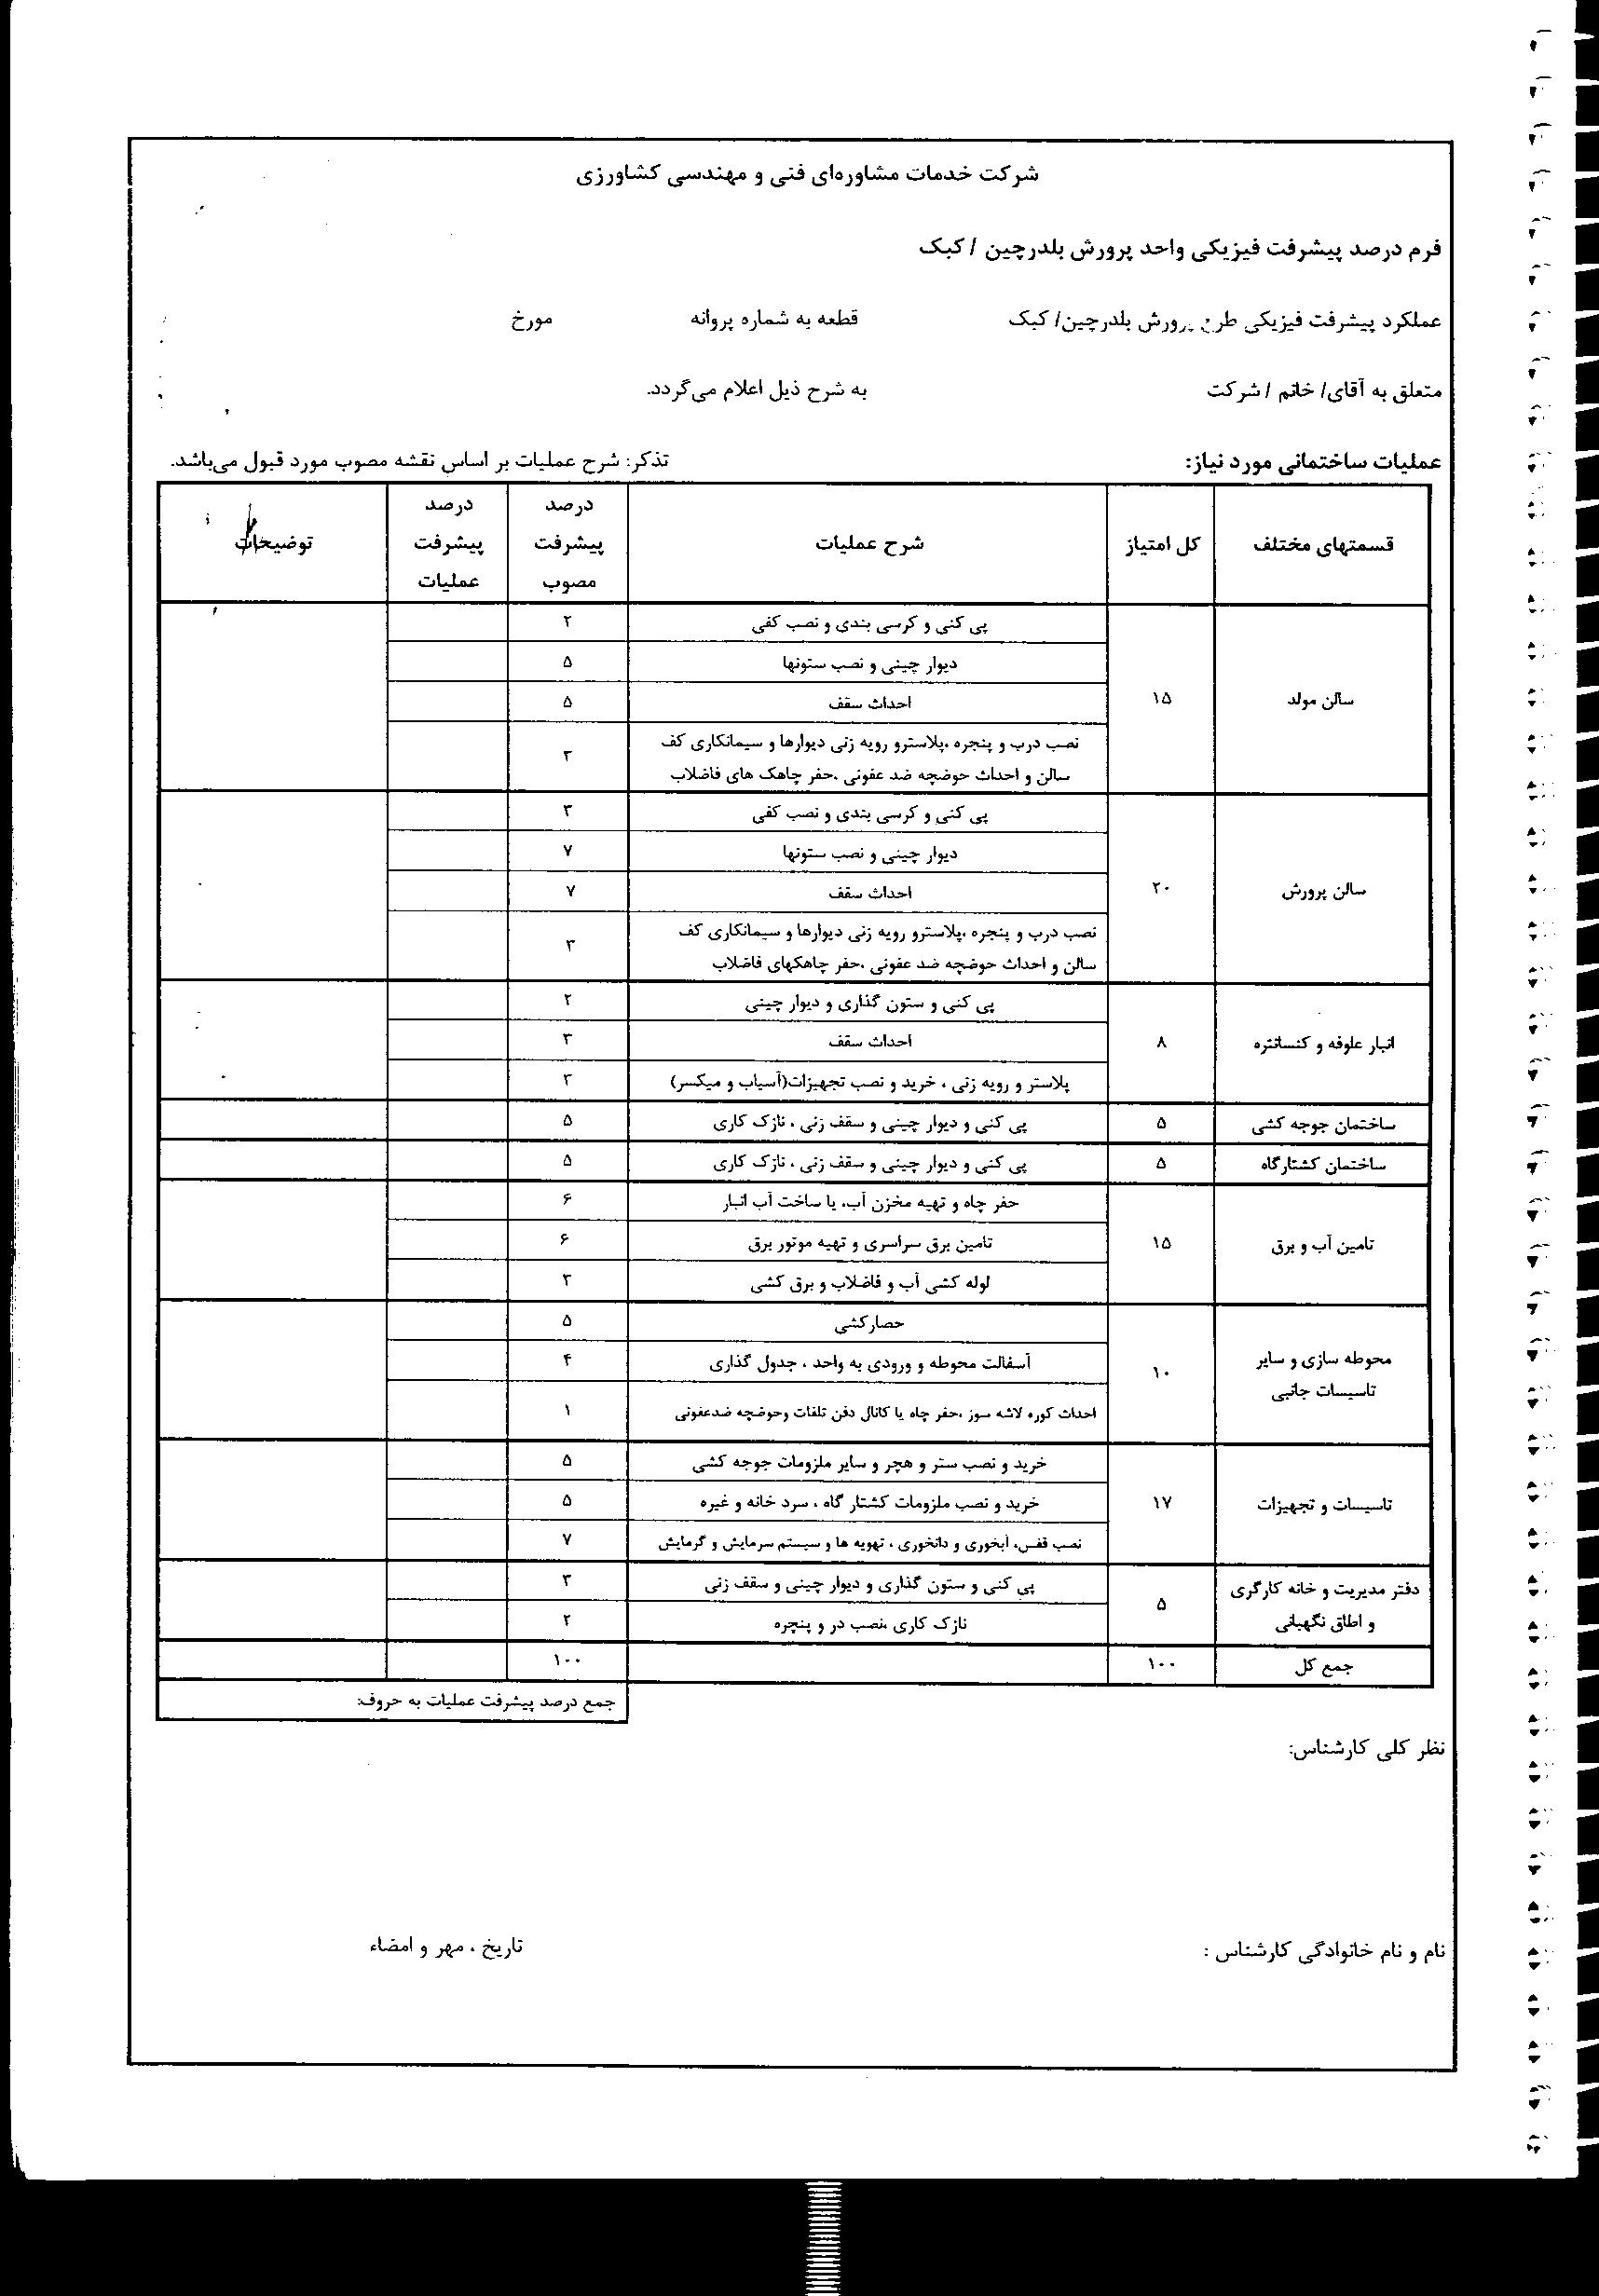 شرکت خدمات مشاوره‌ای فنی و مهندسی کشاورزی
فرم درصد پیشرفت فیزیکی واحد پرورش بلدرچین / کبک
عملکرد پیشرفت فیزیکی طرح پرورش بلدرچین/ کبک قطعه به شماره پروانه مورخ
متعلق به آقای/ خانم / شرکت به شرح ذیل اعلام می‌گردد.
عملیات ساختمانی مورد نیاز: تذکر: شرح عملیات بر اساس نقشه مصوب مورد قبول می‌باشد.
قسمتهای مختلف کل امتیاز شرح عملیات درصد پیشرفت مصوب درصد پیشرفت عملیات توضیحات
سالن مولد ۱۵
پی کنی و کرسی بندی و نصب کفی ۲
دیوار چینی و نصب ستونها ۵
احداث سقف ۵
نصب درب و پنجره ،پلاسترو رویه زنی دیوارها و سیمانکاری کف
سالن و احداث حوضچه ضد عفونی ،حفر چاهک های فاضلاب ۳
سالن پرورش ۲۰
پی کنی و کرسی بندی و نصب کفی ۳
دیوار چینی و نصب ستونها ۷
احداث سقف ۷
نصب درب و پنجره ،پلاسترو رویه زنی دیوارها و سیمانکاری کف
سالن و احداث حوضچه ضد عفونی ،حفر چاهکهای فاضلاب ۳
انبار علوفه و کنسانتره ۸
پی کنی و ستون گذاری و دیوار چینی ۲
احداث سقف ۳
پلاستر و رویه زنی ، خرید و نصب تجهیزات(آسیاب و میکسر) ۳
ساختمان جوجه کشی ۵ پی کنی و دیوار چینی و سقف زنی ، نازک کاری ۵
ساختمان کشتارگاه ۵ پی کنی و دیوار چینی و سقف زنی ، نازک کاری ۵
تامین آب و برق ۱۵
حفر چاه و تهیه مخزن آب، یا ساخت آب انبار ۶
تامین برق سراسری و تهیه موتور برق ۶
لوله کشی آب و فاضلاب و برق کشی ۳
محوطه سازی و سایر
تاسیسات جانبی ۱۰
حصارکشی ۵
آسفالت محوطه و ورودی به واحد ، جدول گذاری ۴
احداث کوره لاشه سوز ،حفر چاه یا کانال دفن تلفات وحوضچه ضدعفونی ۱
تاسیسات و تجهیزات ۱۷
خرید و نصب ستر و هچر و سایر ملزومات جوجه کشی ۵
خرید و نصب ملزومات کشتار گاه ، سرد خانه و غیره ۵
نصب قفس، آبخوری و دانخوری ، تهویه ها و سیستم سرمایش و گرمایش ۷
دفتر مدیریت و خانه کارگری
و اطاق نگهبانی ۵
پی کنی و ستون گذاری و دیوار چینی و سقف زنی ۳
نازک کاری ،نصب در و پنچره ۲
جمع کل ۱۰۰ ۱۰۰
جمع درصد پیشرفت عملیات به حروف:
نظر کلی کارشناس:
نام و نام خانوادگی کارشناس : تاریخ ، مهر و امضاء